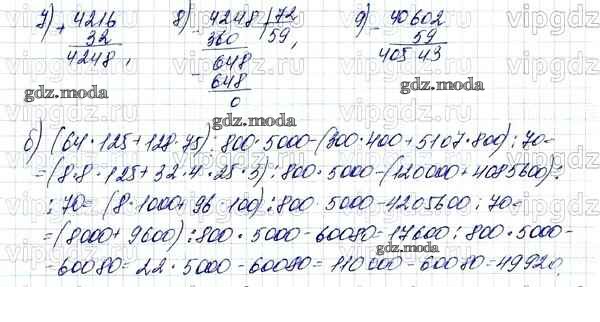 7) + 4216 8) 4248 | 72 9) - 40602
32 360 59, 59
4248, - 648 40543
648
0
gdz.moda gdz.moda gdz.moda
б) (64 · 125 + 128 · 75) : 800 · 5000 - (300 · 400 + 5107 · 800) : 70 =
= (8 · 8 · 125 + 32 · 4 · 25 · 3) : 800 · 5000 - (120000 + 4085600) :
: 70 = (8 · 1000 + 96 · 100) : 800 · 5000 - 4205600 : 70 =
= (8000 + 9600) : 800 · 5000 - 60080 = 17600 : 800 · 5000 -
- 60080 = 22 · 5000 - 60080 = 110000 - 60080 = 49920,
gdz.moda gdz.moda